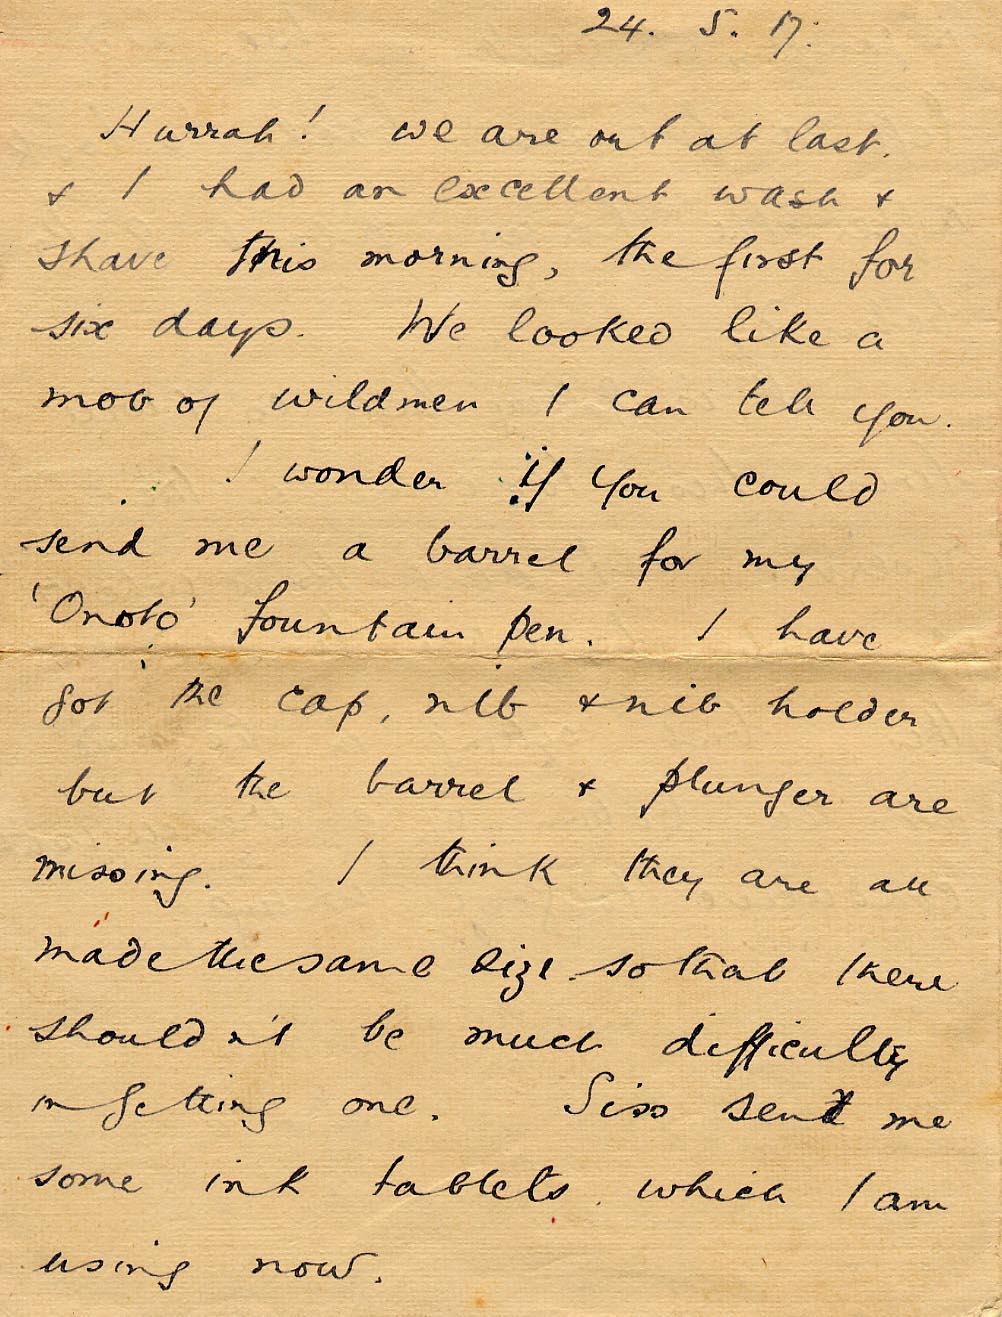 24. 5. 17.
Hurrah! we are out at last.
& I had an excellent wash &
shave this morning, the first for
six days. We looked like a
mob of wildmen I can tell you.
I wonder if you could
send me a barrel for my
'Onoto' fountain pen. I have
got the cap, nib & nib holder
but the barrel & plunger are
missing. I think they are all
made the same size so that there
shouldn't be much difficulty
in getting one. Siss sent me
some ink tablets which I am
using now.